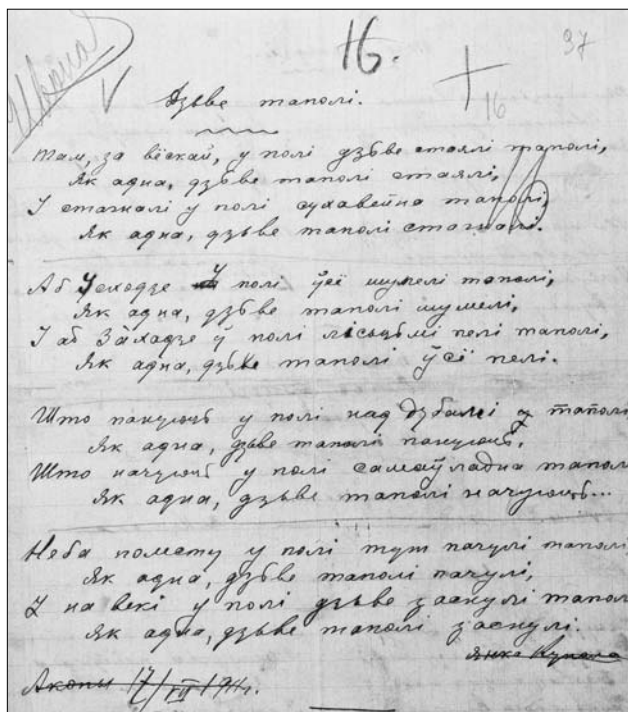 16.
37
16
Дзьве таполі.
Там, за вёскай, у полі дзьве стаялі таполі,
Як адна, дзьве таполі стаялі,
І стагналі у полі сухавейна таполі,
Як адна, дзьве таполі стагналі.
Аб Усходзе У полі ўсё шумелі таполі,
Як адна, дзьве таполі шумелі,
І аб Захадзе ў полі лісьцьмі пелі таполі,
Як адна, дзьве таполі ўсё пелі.
Што пануюць у полі над дубамі таполі
Як адна, дзьве таполі пануюць,
Што начуюць у полі самаўладна тапол
Як адна, дзьве таполі начуюць...
Неба помсту у полі тут пачулі таполі
Як адна, дзьве таполі пачулі,
І на векі у полі дзьве заснулі тапол
Як адна, дзьве таполі заснулі.
Янка Купала
Акопы 17/VII 191 г.